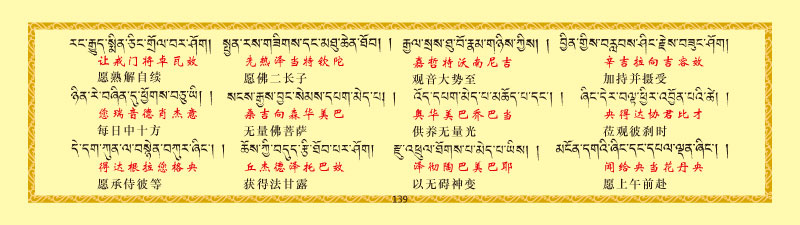 རང་རྒྱུད་སྨིན་ཅིང་གྲོལ་བར་ཤོག། སྤྱན་རས་གཟིགས་དང་མཐུ་ཆེན་ཐོབ། ། རྒྱལ་སྲས་ཐུ་བོ་རྣམ་གཉིས་ཀྱིས། ། བྱིན་གྱིས་བརླབས་ཤིང་རྗེས་བཟུང་ཤོག།
让戒门将卓瓦效 先热泽当特钦陀 嘉哲特沃南尼吉 辛吉拉向吉容效
愿熟解自续 愿佛二长子 观音大势至 加持并摄受
ཉིན་རེ་བཞིན་དུ་ཕྱོགས་བཅུ་ཡི། ། སངས་རྒྱས་བྱང་སེམས་དཔག་མེད་པ། ། འོད་དཔག་མེད་པ་མཆོད་པ་དང་། ། ཞིང་དེར་བལྟ་ཕྱིར་འབྱོན་པའི་ཚེ། །
您瑞音德肖杰意 桑吉向森华美巴 奥华美巴乔巴当 央得达协君比才
每日中十方 无量佛菩萨 供养无量光 莅观彼刹时
དེ་དག་ཀུན་ལ་བསྙེན་བཀུར་ཞིང་། ། ཆོས་ཀྱི་བདུད་རྩི་ཐོབ་པར་ཤོག། རྫུ་འཕྲུལ་ཐོགས་པ་མེད་པ་ཡིས། ། མངོན་དགའི་ཞིང་དང་དཔལ་ལྡན་ཞིང་། །
得达根拉您格央 丘杰德泽托巴效 泽彻陶巴美巴耶 闻给央当花丹央
愿承侍彼等 获得法甘露 以无碍神变 愿上午前赴
139